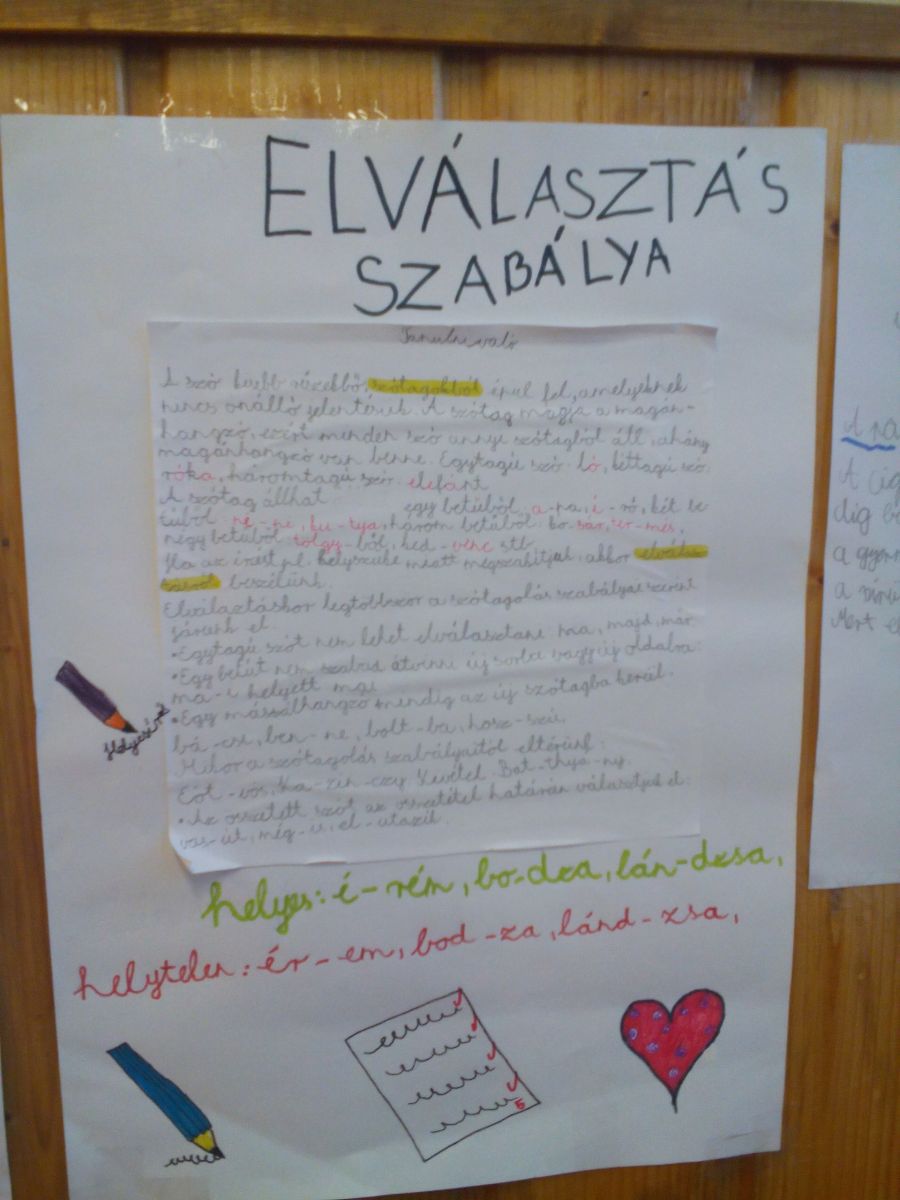 ELVÁLASZTÁS
SZABÁLYA
Tanulnivaló
A szó kisebb részekből, szótagokból épül fel, amelyeknek
nincs önálló jelentésük. A szótag magja a magán-
hangzó, ezért minden szó annyi szótagból áll, ahány
magánhangzó van benne. Egytagú szó: ló, kéttagú szó:
róka, háromtagú szó: elefánt
A szótag állhat
egy betűből: a-na, i-ró, két be-
tűből: né-ni, ku-tya, három betűből: ko-sár, ter-més,
négy betűből: tölgy-ből, ked-venc stb.
Ha az írást pl. helyszűke miatt megszakítjuk, akkor elválasz-
tásról beszélünk.
Elválaztáskor legtöbbször a szótagolás szabályai szerint
járunk el.
•Egytagú szót nem lehet elválasztani: ma, majd, már
•Egy betűt nem szabad átvinni új sorba vagy új oldalra:
ma-i helyett mai
•Egy mássalhangzó mindig az új szótagba kerül.
bá-csi, ben-ne, bolt-ba, hosz-szú,
Mikor a szótagolás szabályaitól eltérünk:
Eöt-vös, Ka-zin-czy. Kivétel: Bat-thyá-ny.
•Az összetett szót az összetétel határán választjuk el:
vas-út, még-is, el-utazik.
Helyesírás
helyes: é-rém, bo-dza, lán-dzsa,
helytelen: ér-em, bod-za, lánd-zsa,
5
A
A cig
dig
a gyer
a
Mert e